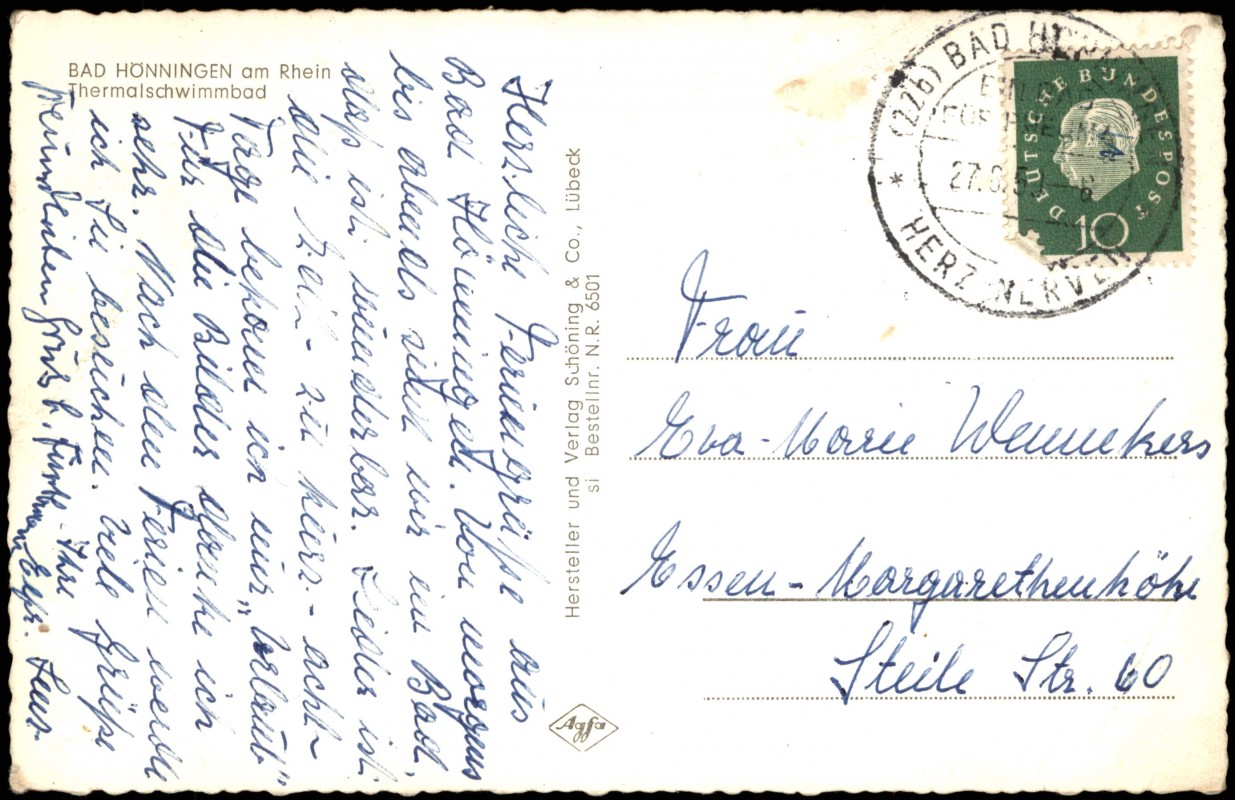 BAD HÖNNINGEN am Rhein
Thermalschwimmbad
Herzliche Feriengrüße aus
Bad Hönningen. Von morgens
bis abends sind wir im Bad.
das ist wunderbar. Leider ist
die Zeit zu kurz - acht-
Tage bekam ich nur „Urlaub"
Für die Bilder danke ich
sehr. Nach den Ferien werde
ich Sie besuchen. Viele Grüße
Ihre
freundlichen Gruß
Hersteller und Verlag Schöning & Co., Lübeck
si Bestellnr. N.R. 6501
Agfa
(22b) BAD
HERZ NERVEN
27.8.5
DEUTSCHE BUNDESPOST
10
Frau
Eva-Marie Wennekers
Essen-Margarethenhöhe
Steile Str. 60